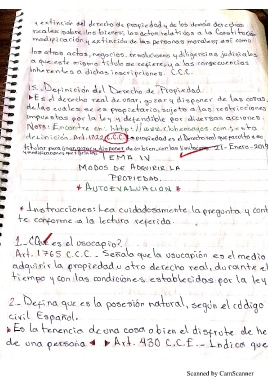 y extinción del derecho de propiedad y de los demás derechos
reales sobre los bienes, los actos relativos a la Constitución
modificación y extinción de las personas morales así como
los otros actos, negocios, resoluciones y diligencias judiciales
a que este mismo título se refiere, y a las consecuencias
inherentes a dichas inscripciones. C.C.C.
15. Definición del Derecho de Propiedad
Es el derecho real de usar, gozar y disponer de las cosas,
de las cuales se es propietario, sujeto a las restricciones
impuestas por la ley y defendible por diversas acciones.
Nota: Encontre en: http://www
definición. Art. C.C.C. propiedad es el Derecho real que faculta a su
titular para usar, gozar y disponer de un bien, con las 21-Enero-2019
TEMA IV
MODOS DE ADQUIRIR LA
PROPIEDAD.
* AUTOEVALUACION *
Instrucciones: Lea cuidadosamente la pregunta y cont
te conforme a la lectura referida.
1.- ¿Qué es el usocapio?
Art. 1765 C.C.C.- Señala que la usucapión es el medio
adquirir la propiedad u otro derecho real, durante el
tiempo y con las condiciones establecidas por la ley
2.- Defina que es la posesión natural, según el código
civil Español.
Es la tenencia de una cosa o bien el disfrute de
de una persona Art. 430 C.C.E.- Indica que
Scanned by CamScanner